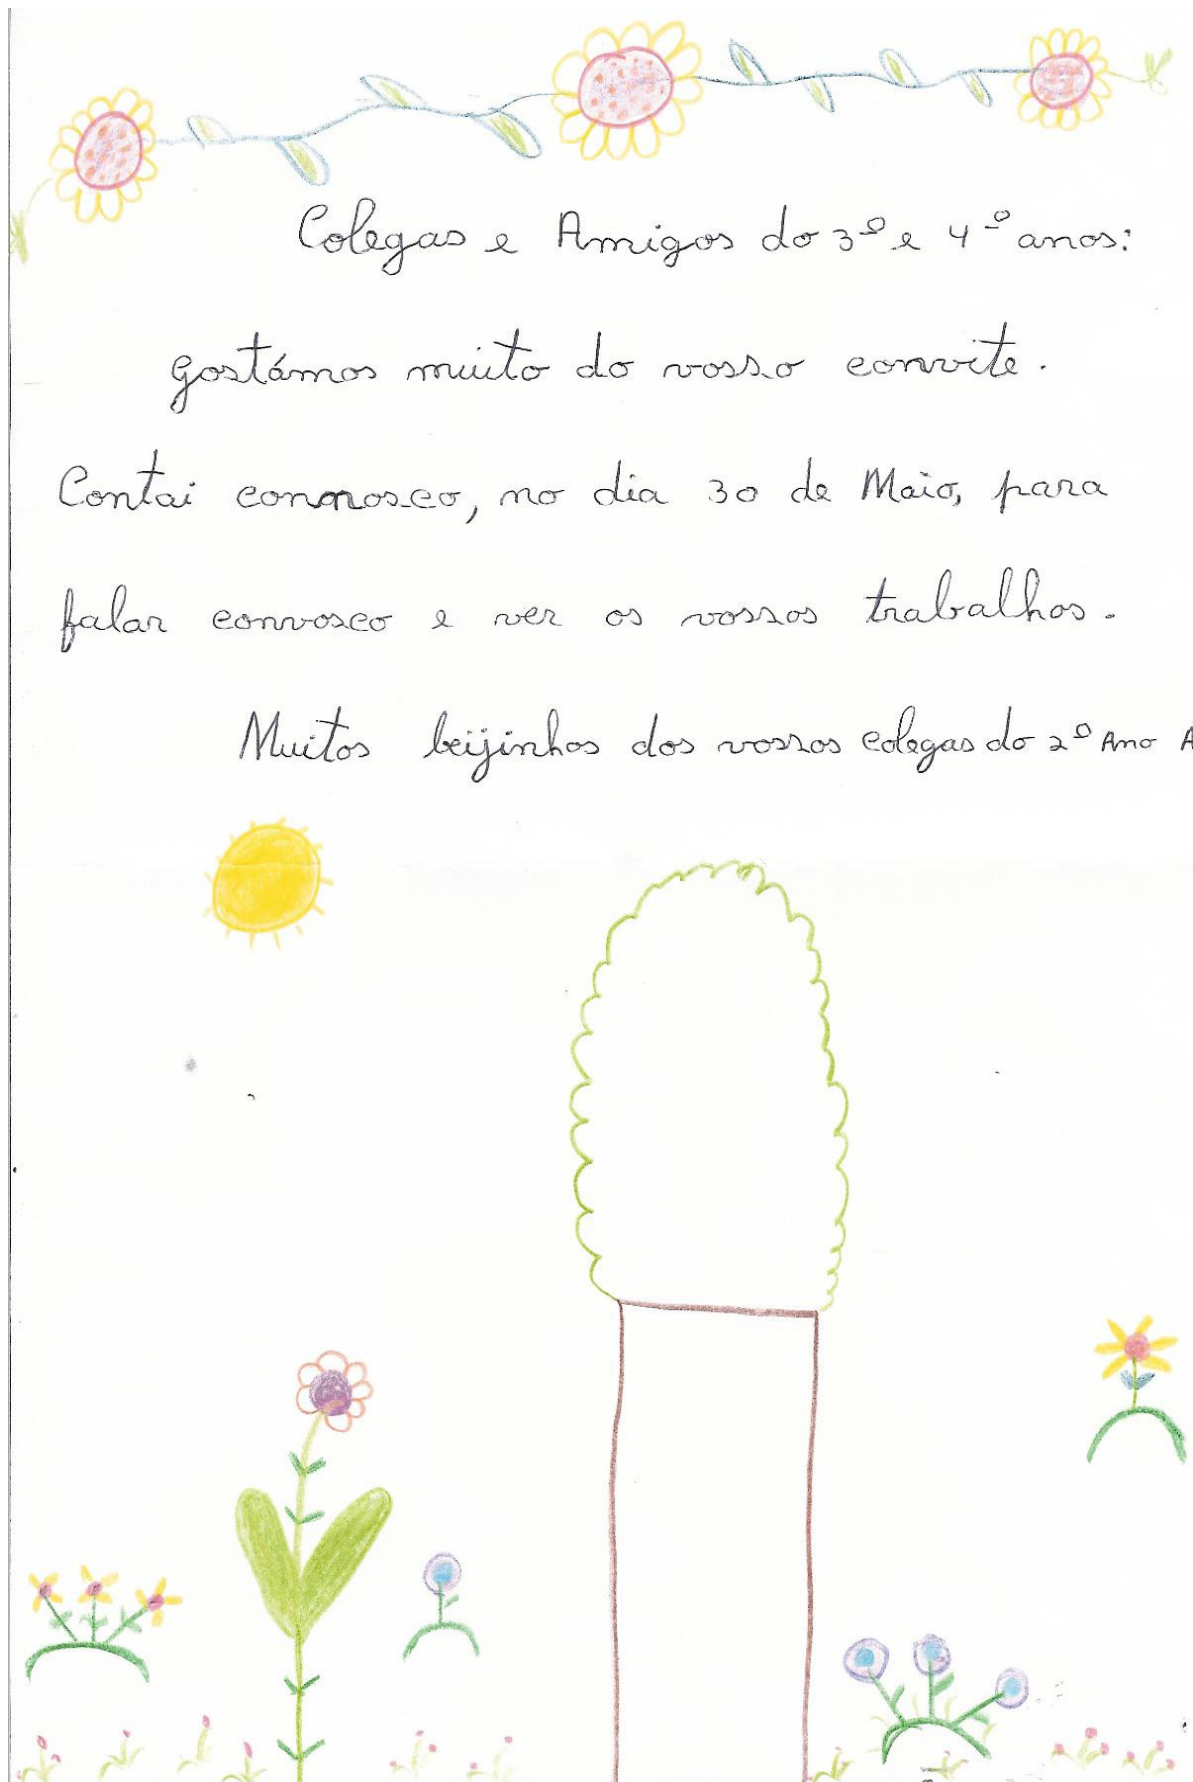 Colegas e Amigos do 3º e 4º anos:
gostámos muito do vosso convite.
Contai connosco, no dia 30 de Maio, para
falar convosco e ver os vossos trabalhos.
Muitos beijinhos dos vossos colegas do 2º Ano A